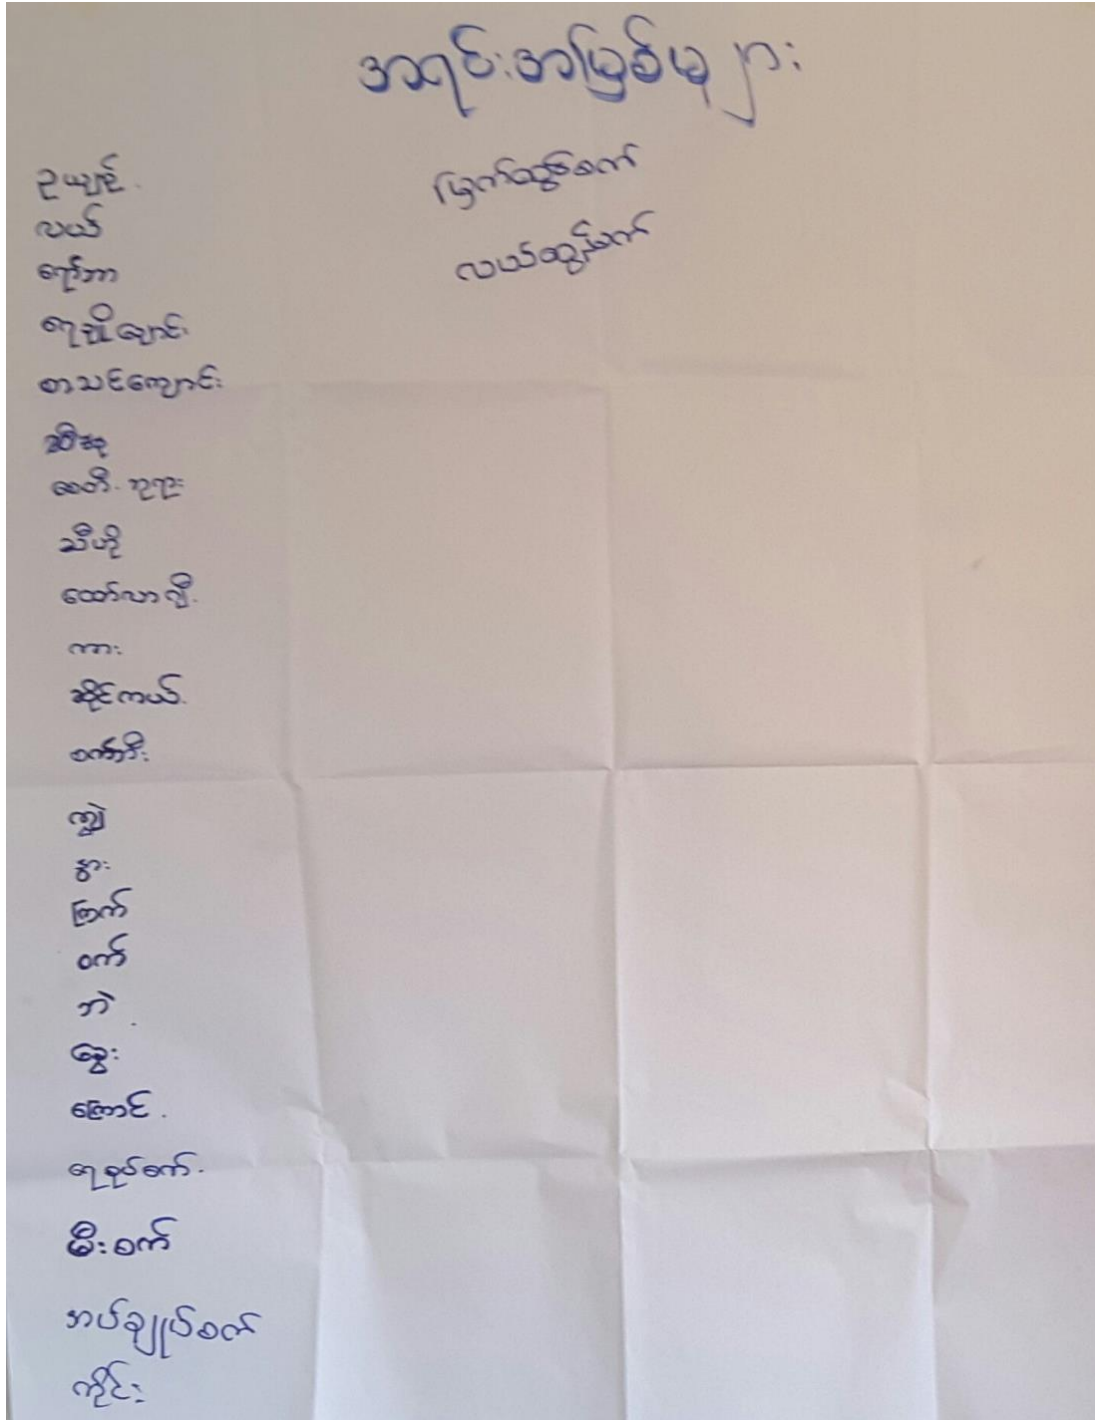 အရင်းအမြစ်များ
ဥယျာဉ်
လယ်
ရော်ဘာ
ရေချိုချောင်း
စာသင်ကျောင်း
ဆီအုန်း
စေတီ. ဘုရား
သီဟို
ထော်လာဂျီ.
ကား
ဆိုင်ကယ်.
စက်ဘီး
ကျွဲ
နွား
ကြက်
ဝက်
ဘဲ
ခွေး
ကြောင်.
ရေစုပ်စက်.
မီးစက်
အပ်ချုပ်စက်
ကိုင်း
မြက်ထွင်စက်
လယ်ထွန်စက်